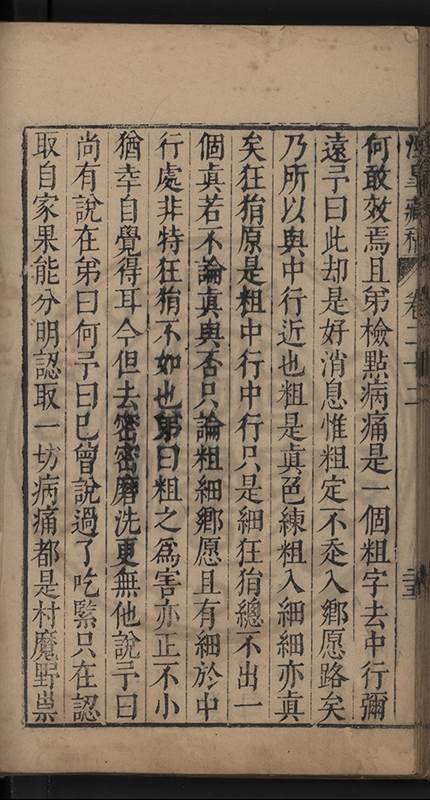 藏稿 卷二十二
何敢效焉且弟檢點病痛是一個粗字去中行彌
遠予曰此却是好消息惟粗定不忝入鄉愿路矣
乃所以與中行近也粗是眞色練粗入細細亦眞
矣狂狷原是粗中行中行只是細狂狷總不出一
個眞若不論眞與否只論粗細鄉愿且有細於中
行處非特狂狷不如也弟曰粗之爲害亦正不小
猶幸自覺得耳今但去密密磨洗更無他說予曰
尚有說在弟曰何予曰已曾說過了吃緊只在認
取自家果能分明認取一切病痛都是村魔野祟